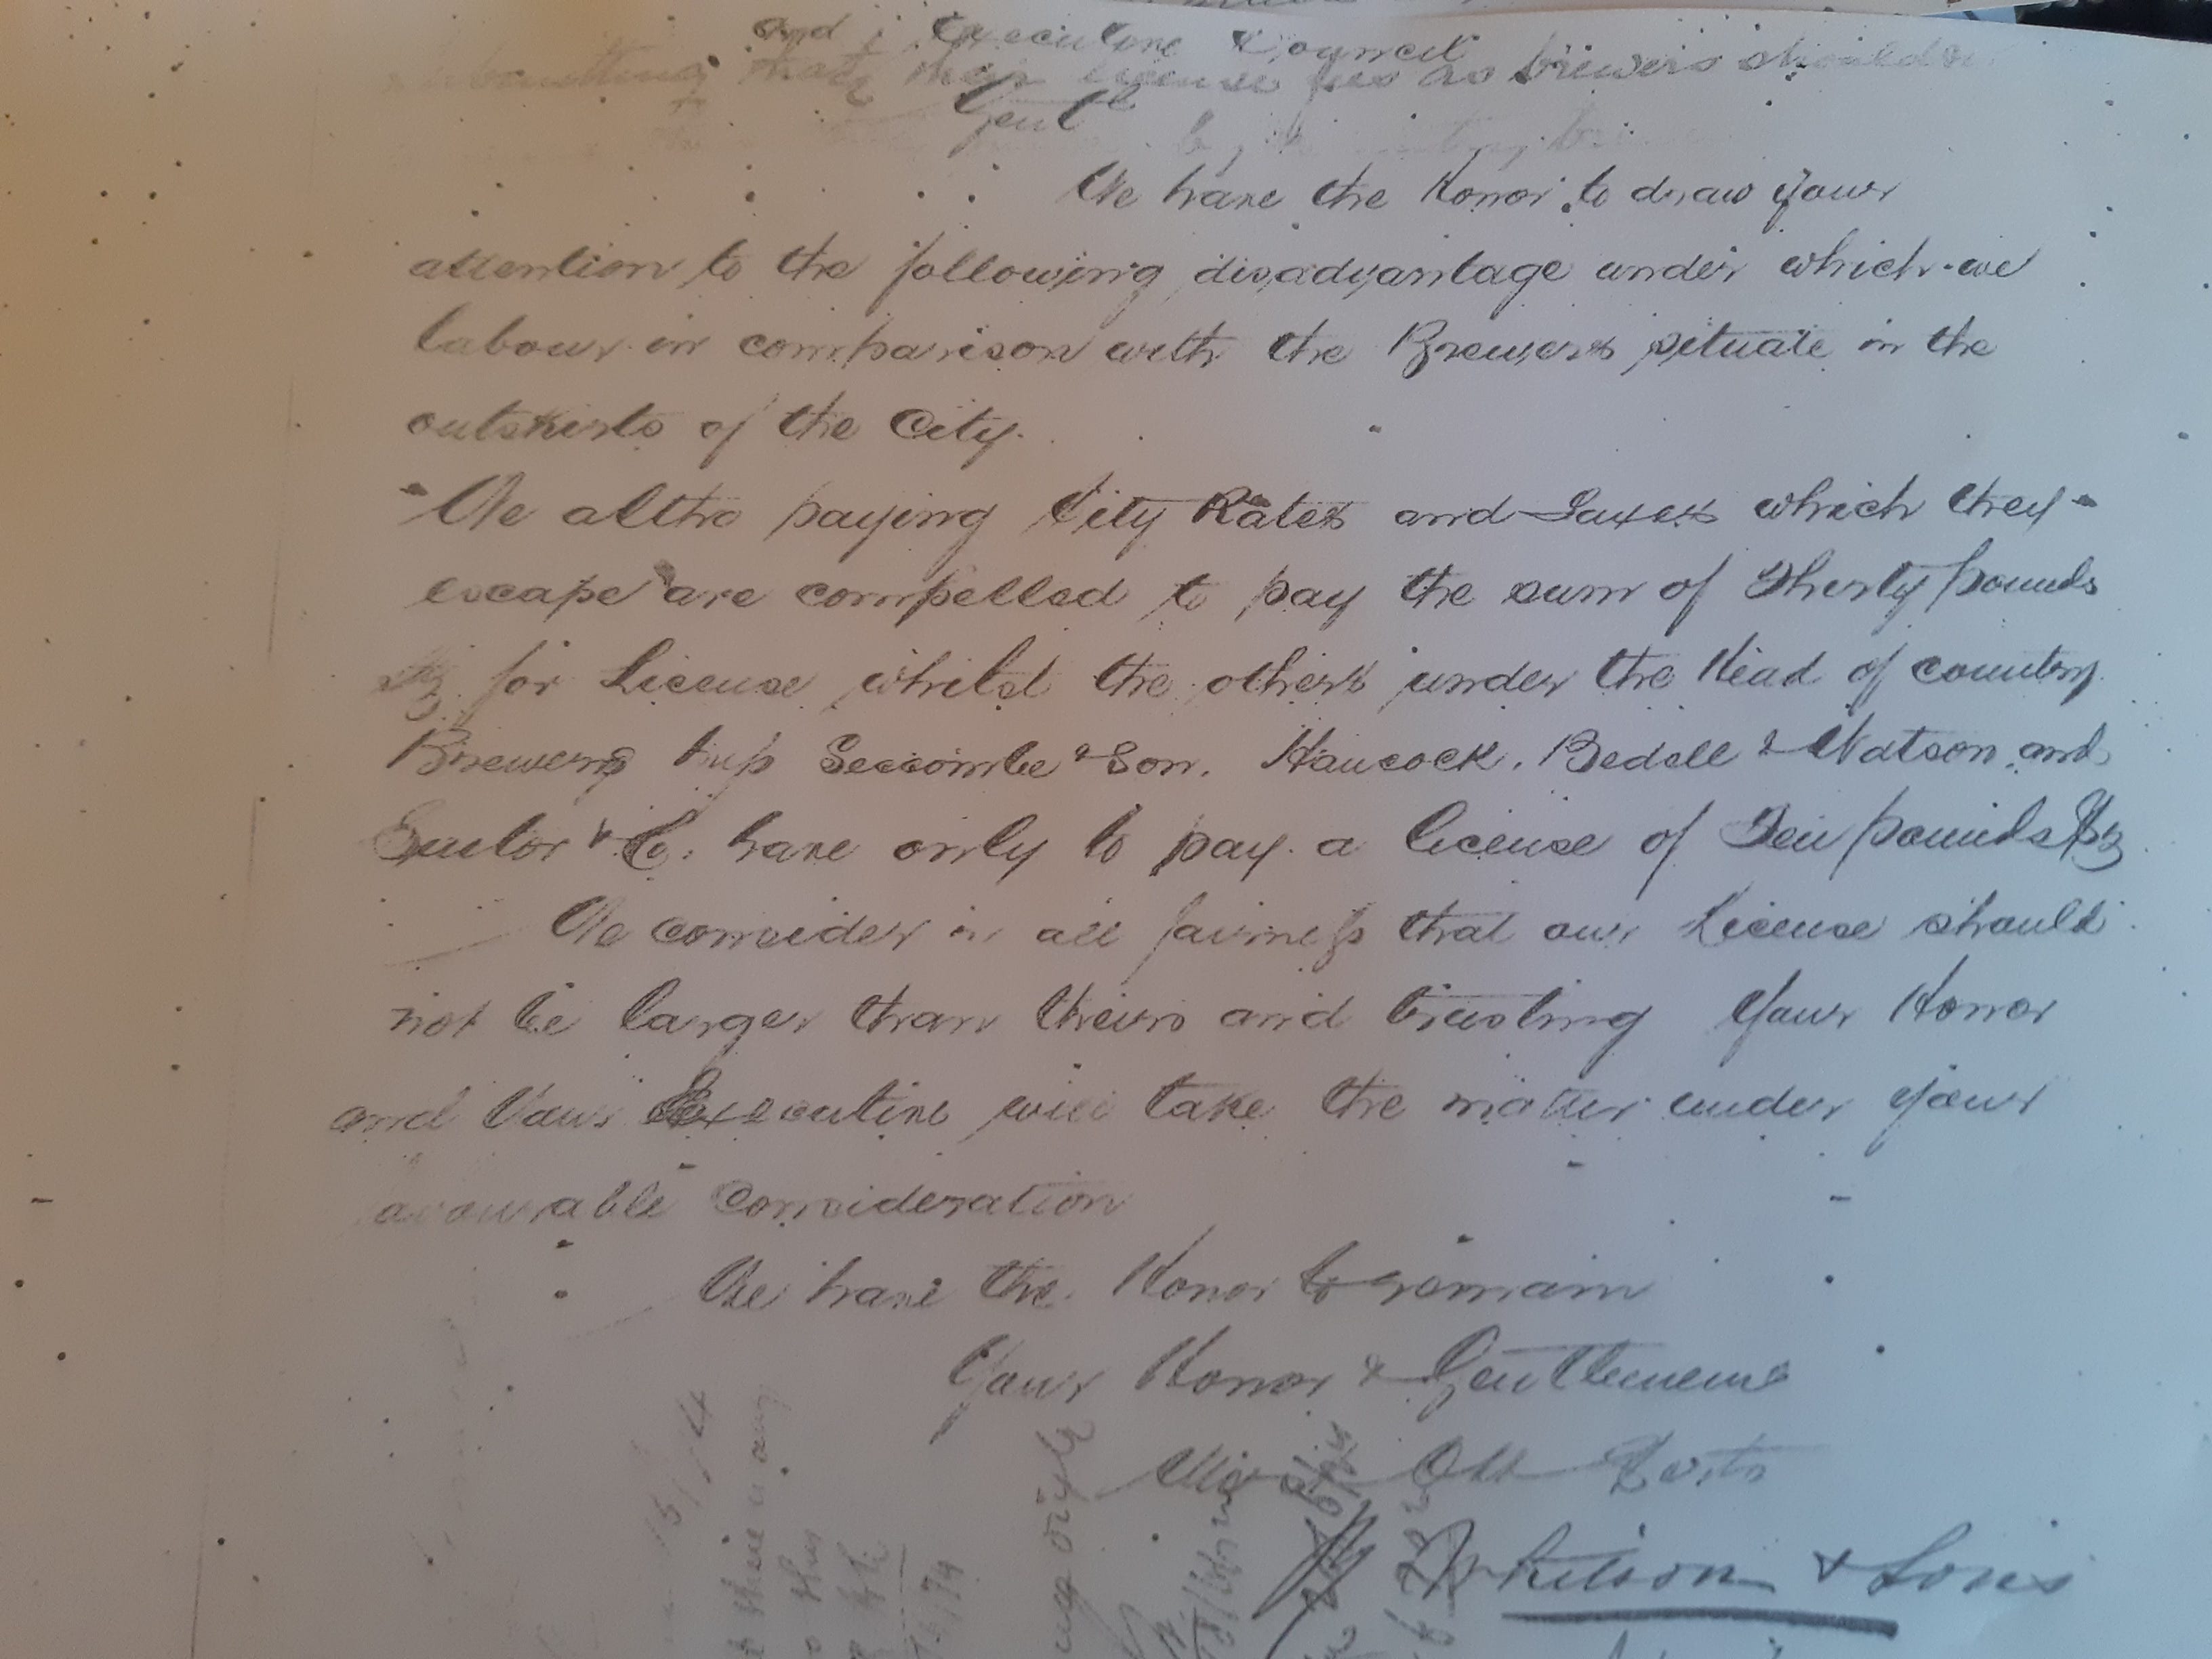 and Executive Council
submitting that their license fees as brewers should
Gentn
We have the Honor to draw your
attention to the following disadvantage under which we
labour in comparison with the Brewers situate in the
outskirts of the City.
We altho paying City Rates and Taxes which they
escape are compelled to pay the sum of Thirty pounds
for License whilst the others under the Head of country
Brewers Seccombe & Son. Hancock. Bedell & Watson and
& Co. have only to pay a license of Ten pounds
We consider in all fairness that our License should
not be larger than theirs and trusting Your Honor
and Your Executive will take the matter under your
avourable Consideration
We have the Honor to remain
Your Honor & Gentlemen
Obt
& Sons